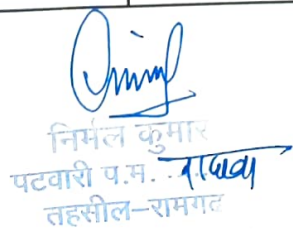 निर्मल कुमार
पटवारी प.म.
तहसील-रामगढ